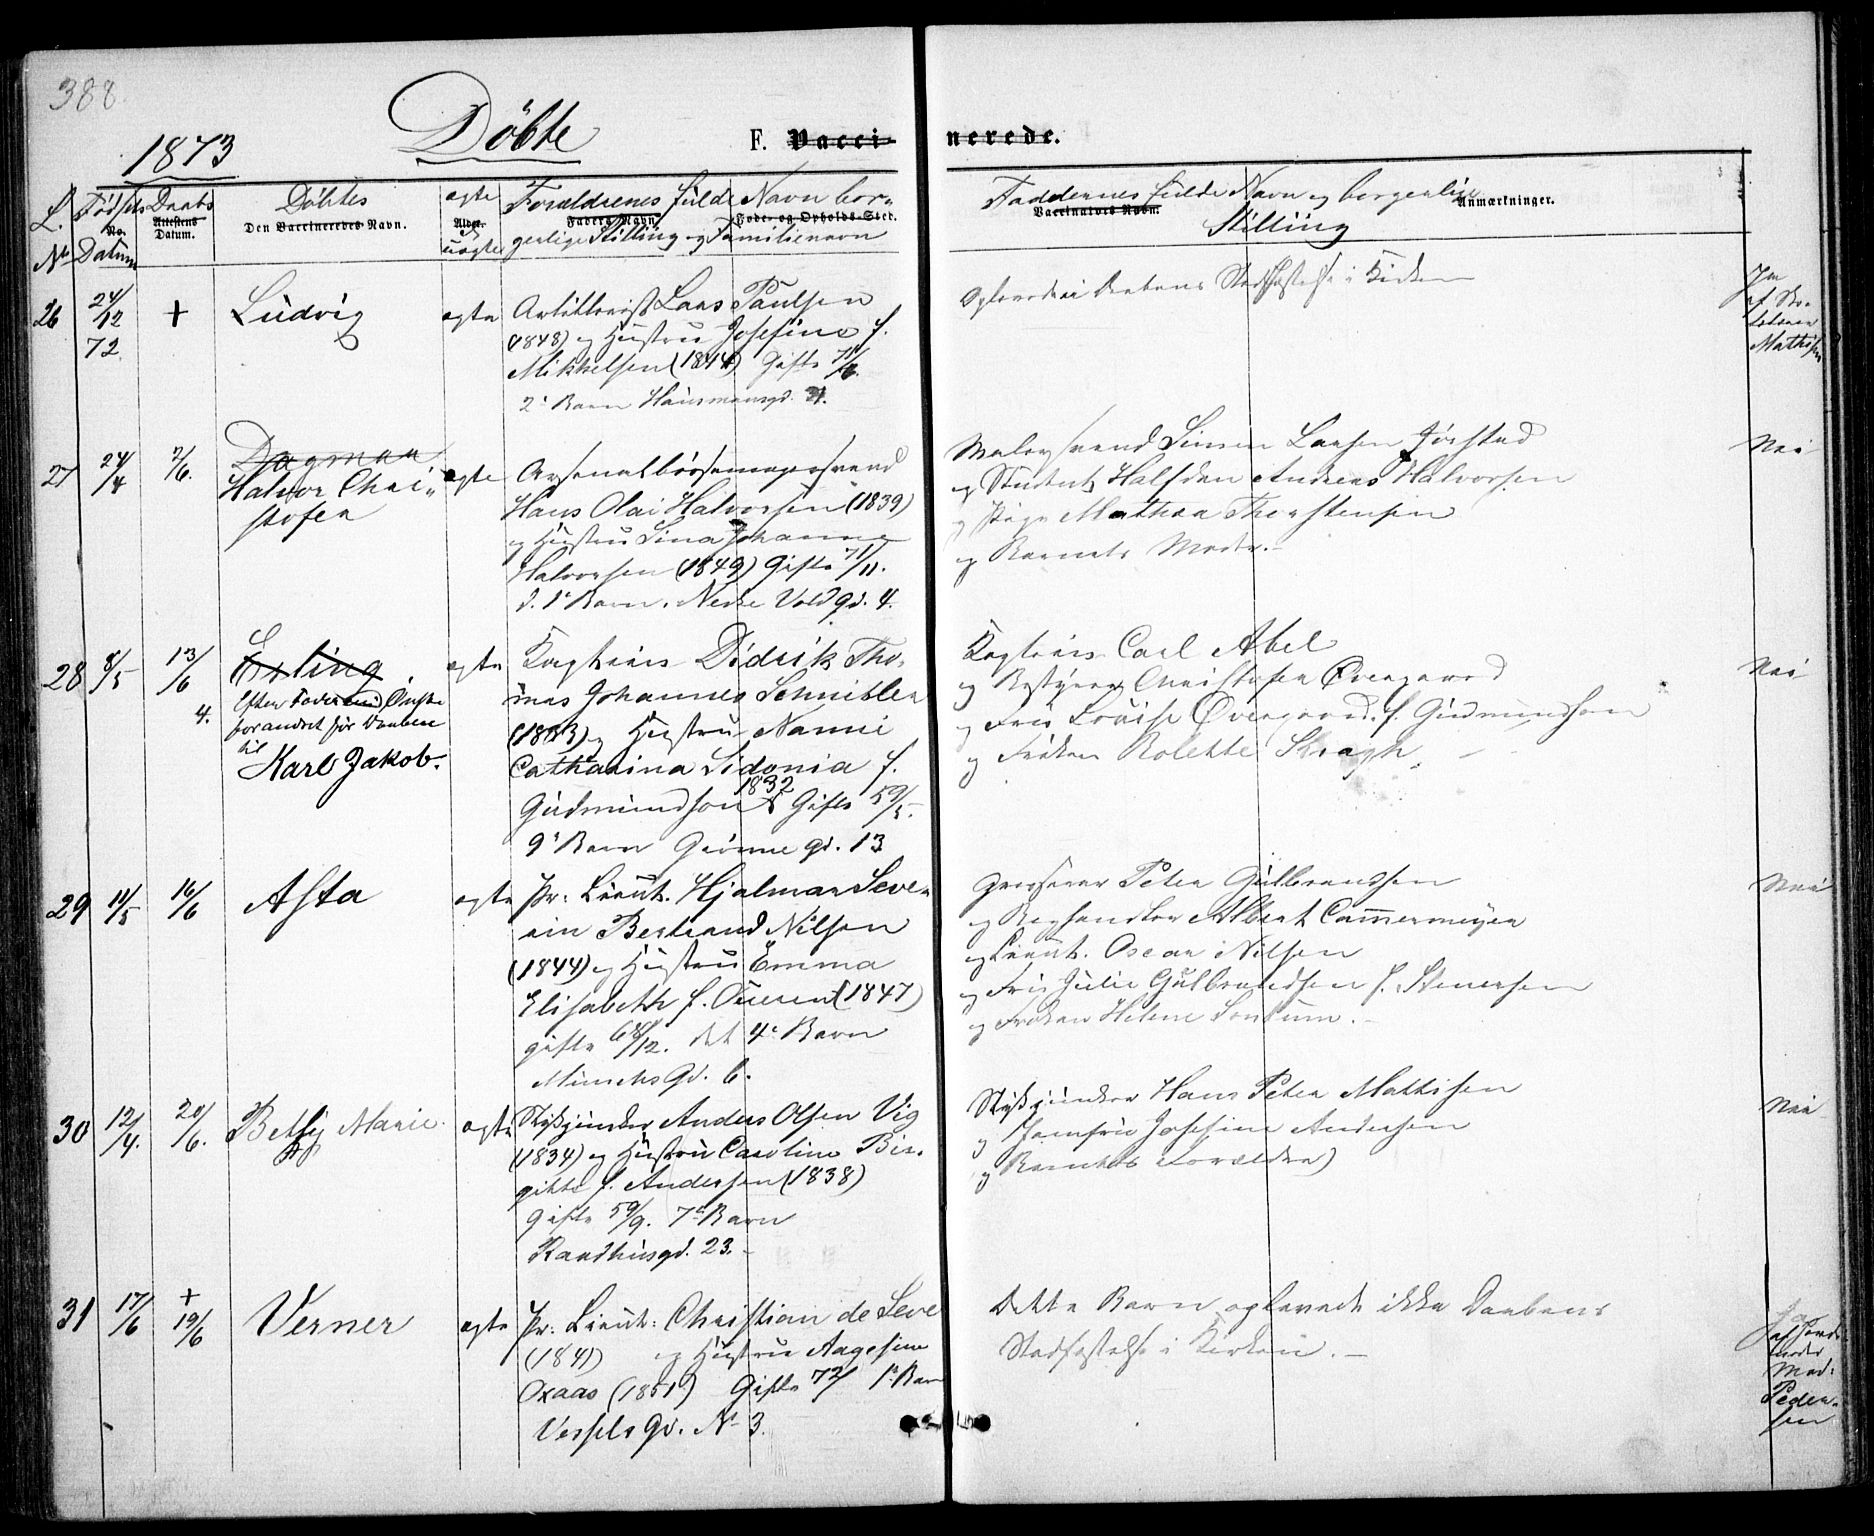 388
1873
Döbte
F. Vacci-
nerede.
L.
No
Födsels
No.
Datum
Daabs
Attestens
Datum.
Döbtes
Den Vaccineredes Navn.
ægte
Alder.
uægte
Forældrenes fulde Navn bor-
Faders Navn.
Føde- og Opholds-Sted.
gerlige Stilling og Familienavn
Faddernes fulde Navn og borgerlige
Vaccinateurs Navn.
Anmærkninger.
Stilling
26
24/12
72
+
Ludvig
ægte
Artillerist Lars Paulsen
(1848) og Hustru Josefine f.
Mikkelsen (1844) Gifte
2. Barn Hausmansgd.
Daabens Stadfæstelse i Kirken
Mathisen
27
24/4
2/6.
Dagmar
Halvor Chri-
stofer
ægte
Arsenalbøssemagersvend
Hans Olai Halvorsen (1839)
og Hustru Lina Johanne
Halvorsen (1849) Gifte 71/11.
d. 1e Barn. Nedre Voldgd. 4.
Malersvend Simen Larsen Jörstad
og Student Halfdan Andreas Halvorsen
og Pige Mathea Thorstensen
og Barnets Moder.
Nei
28
8/5
13/6
4.
Erling
Efter Faderens Ønske
forandret før Daaben
til
Karl Jakob.
ægte
Kaptein Didrik Tho-
mas Johannes Schnitler
(1833) og Hustru Nannie
Catharina Sidonia f.
Gudmundson 1832 Gifte 59/5.
9e Barn Grönne gd. 13
Kaptein Carl Abel
og Bestyrer Christofer Övergaard
og Fru Louise Övergaard f. Gudmundson
og Fröken Bolette Kragh.
Nei
29
11/5
16/6
Asta
ægte
Pr: Lieut. Hjalmar Seve-
rin Bertrand Nilsen
(1844) og Hustru Emma
Elisabeth f. Ouren (1847)
gifte 68/12. det 4e Barn
Munchs Gd. 6.
Grosserer Peter Gulbranssen
og Boghandler Albert Cammermeyer
og Lieut. Oscar Nilsen
og Fru Julie Gulbrandsen f. Stenersen
og Fröken Helene Sontum.
Nei
30
12/4.
20/6.
Betsy Marie
ægte
Stykjunker Anders Olsen Vig
(1834) og Hustru Caroline Bir-
gitte f. Anderssen (1838)
Gifte 59/9. 7e Barn
Raadhusgd. 23.
Stykjunker Hans Peter Mathisen
og Jomfru Josefine Andersen
og Barnets Forældre)
Nei
31
17/6
+
19/6
Verner
ægte
Pr: Lieut: Christian de Seve
(1841) og Hustru Aagesine
Oxaas (1851) Gifte 72/ 1e Barn
Vessels Gd. No 3.
Dette Barn oplevede ikke Daabens
Stadfæstelse i Kirken.
Ja
af Jorde
moder
Mad:
Peder-
sen